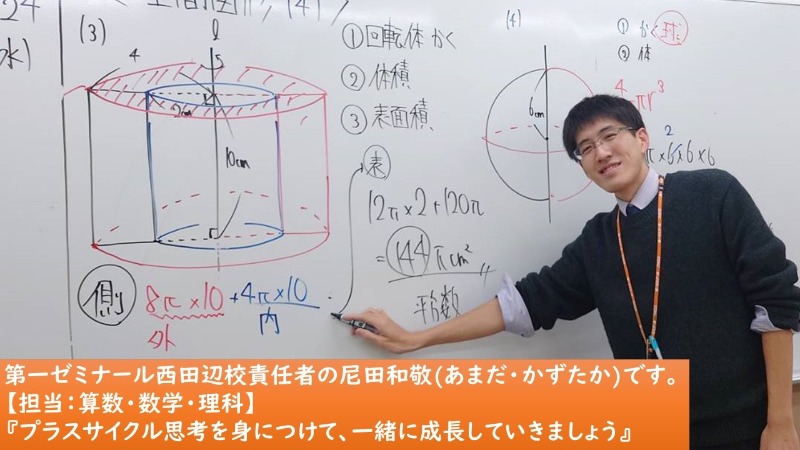 24
(3)
ℓ
4
2cm
10cm
側
8π×10 + 4π×10
外
内
①回転体かく
②体積
③表面積
表
12π×2+120π
=144πcm²
平方数
(4)
6cm
①かく 球
②体
4
πr³
π×6×6×6
2
第一ゼミナール西田辺校責任者の尼田和敬(あまだ・かずたか)です。
【担当:算数・数学・理科】
『プラスサイクル思考を身につけて、一緒に成長していきましょう』